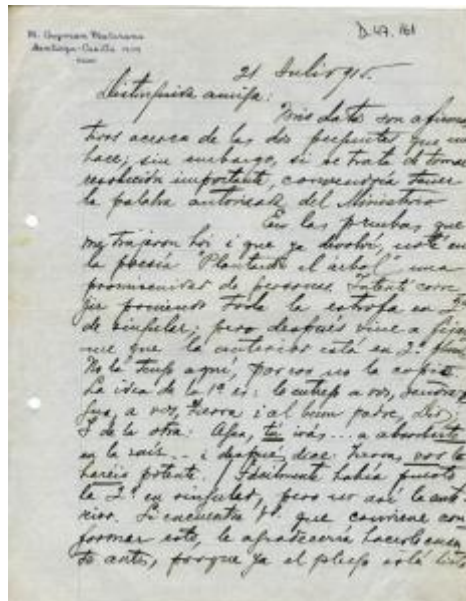 M. Guzmán Maturana
Santiago - Casilla
D.47.161
21 Julio 915.
Distinguida amiga:
Mis datos son afirma
tivos acerca de las dos preguntas que me
hace; sin embargo, si se trata de tomar
resolución importante, convendría tener
la palabra autorizada del Ministerio
En las pruebas que
me trajeron hoi i que ya devolví, noté en
la poesía "Plantando el árbol" una
promiscuidad de personas. Intenté corre
jir poniendo toda la estrofa en 2ª
de singular; pero después vine a fijar
me que la anterior está en 2ª plural
No la tengo aquí, por eso no la copio.
La idea de la 1ª es: lo entrego a vos,
Agua, a vos, tierra i al buen padre, Dios;
I de la otra: Agua, tú irás... a
en la raíz... i después dice: tierra, vos lo
hareis potente. Fácilmente había puesto
la 2ª en singular, pero no así la ante
rior. Si encuentra Ud. que conviene con
formar esto, le agradecería hacerlo cuan
to antes, porque ya el pliego está listo